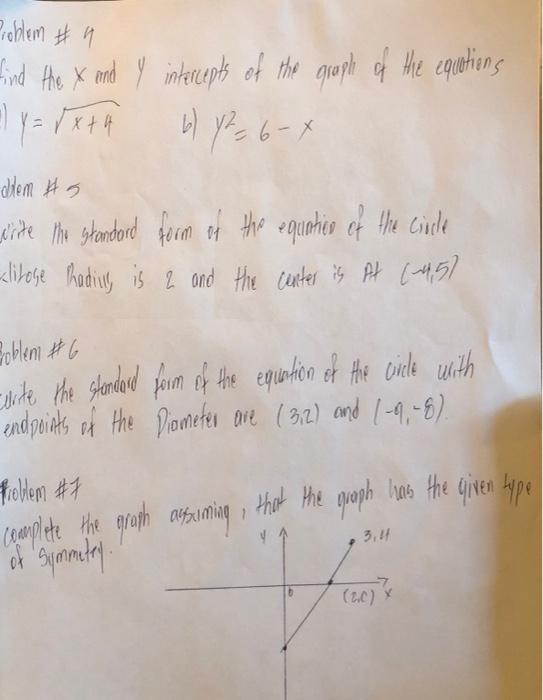 Problem # 4
find the x and y intercepts of the graph of the equations
a) y = √x+4 b) y² = 6 - x
oblem # 5
write the standard form of the equation of the circle
Radius is 2 and the center is At (-4,5)
roblem #6
write the standard form of the equation of the circle with
endpoints of the Diameter are (3,2) and (-9,-8).
Problem #7
complete the graph assuming, that the graph has the given type
of symmetry.
y
3,4
(2,0) x